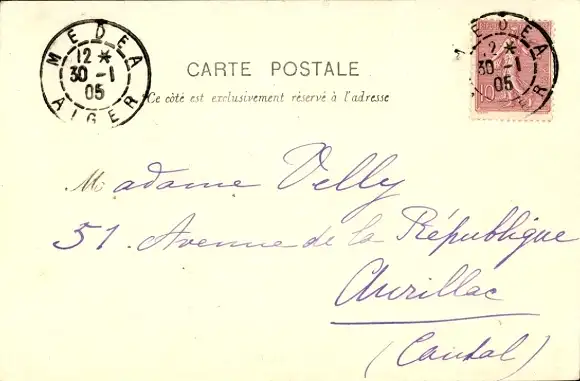 MEDEA
12 *
30 -1
05
ALGER
MEDEA
12 *
30 -1
05
ER
10
CARTE POSTALE
Ce côté est exclusivement réservé à l'adresse
Madame Velly
51. Avenue de la République
Aurillac
(Cantal)